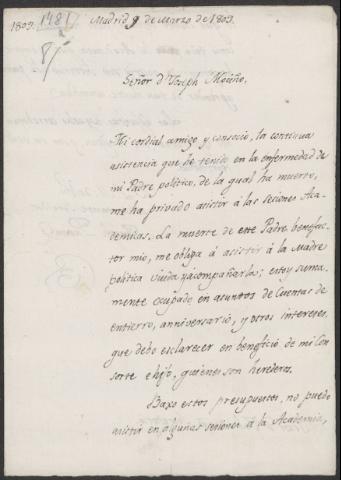 1803. 1481 Madrid 9 de Marzo de 1803.
8/
Señor Dn Joseph Moziño.
Mi cordial amigo y consocio, la continua
asistencia que he tenido en la enfermedad de
mi Padre politico, de la qual ha muerto,
me ha privado asistir á las seciones Aca-
demicas. La muerte de este Padre benefac-
tor mio, me obliga á asistir á la Madre
politica viuda y acompañarla; estoy suma-
mente ocupado en asuntos de Cuentas de
entierro, anniversario, y otros intereses,
que debo esclarecer en beneficio de mi Con-
sorte e hijo, quienes son herederos.
Baxo estos presupuestos, no puedo
asistir en algunas seciones á la Academia,